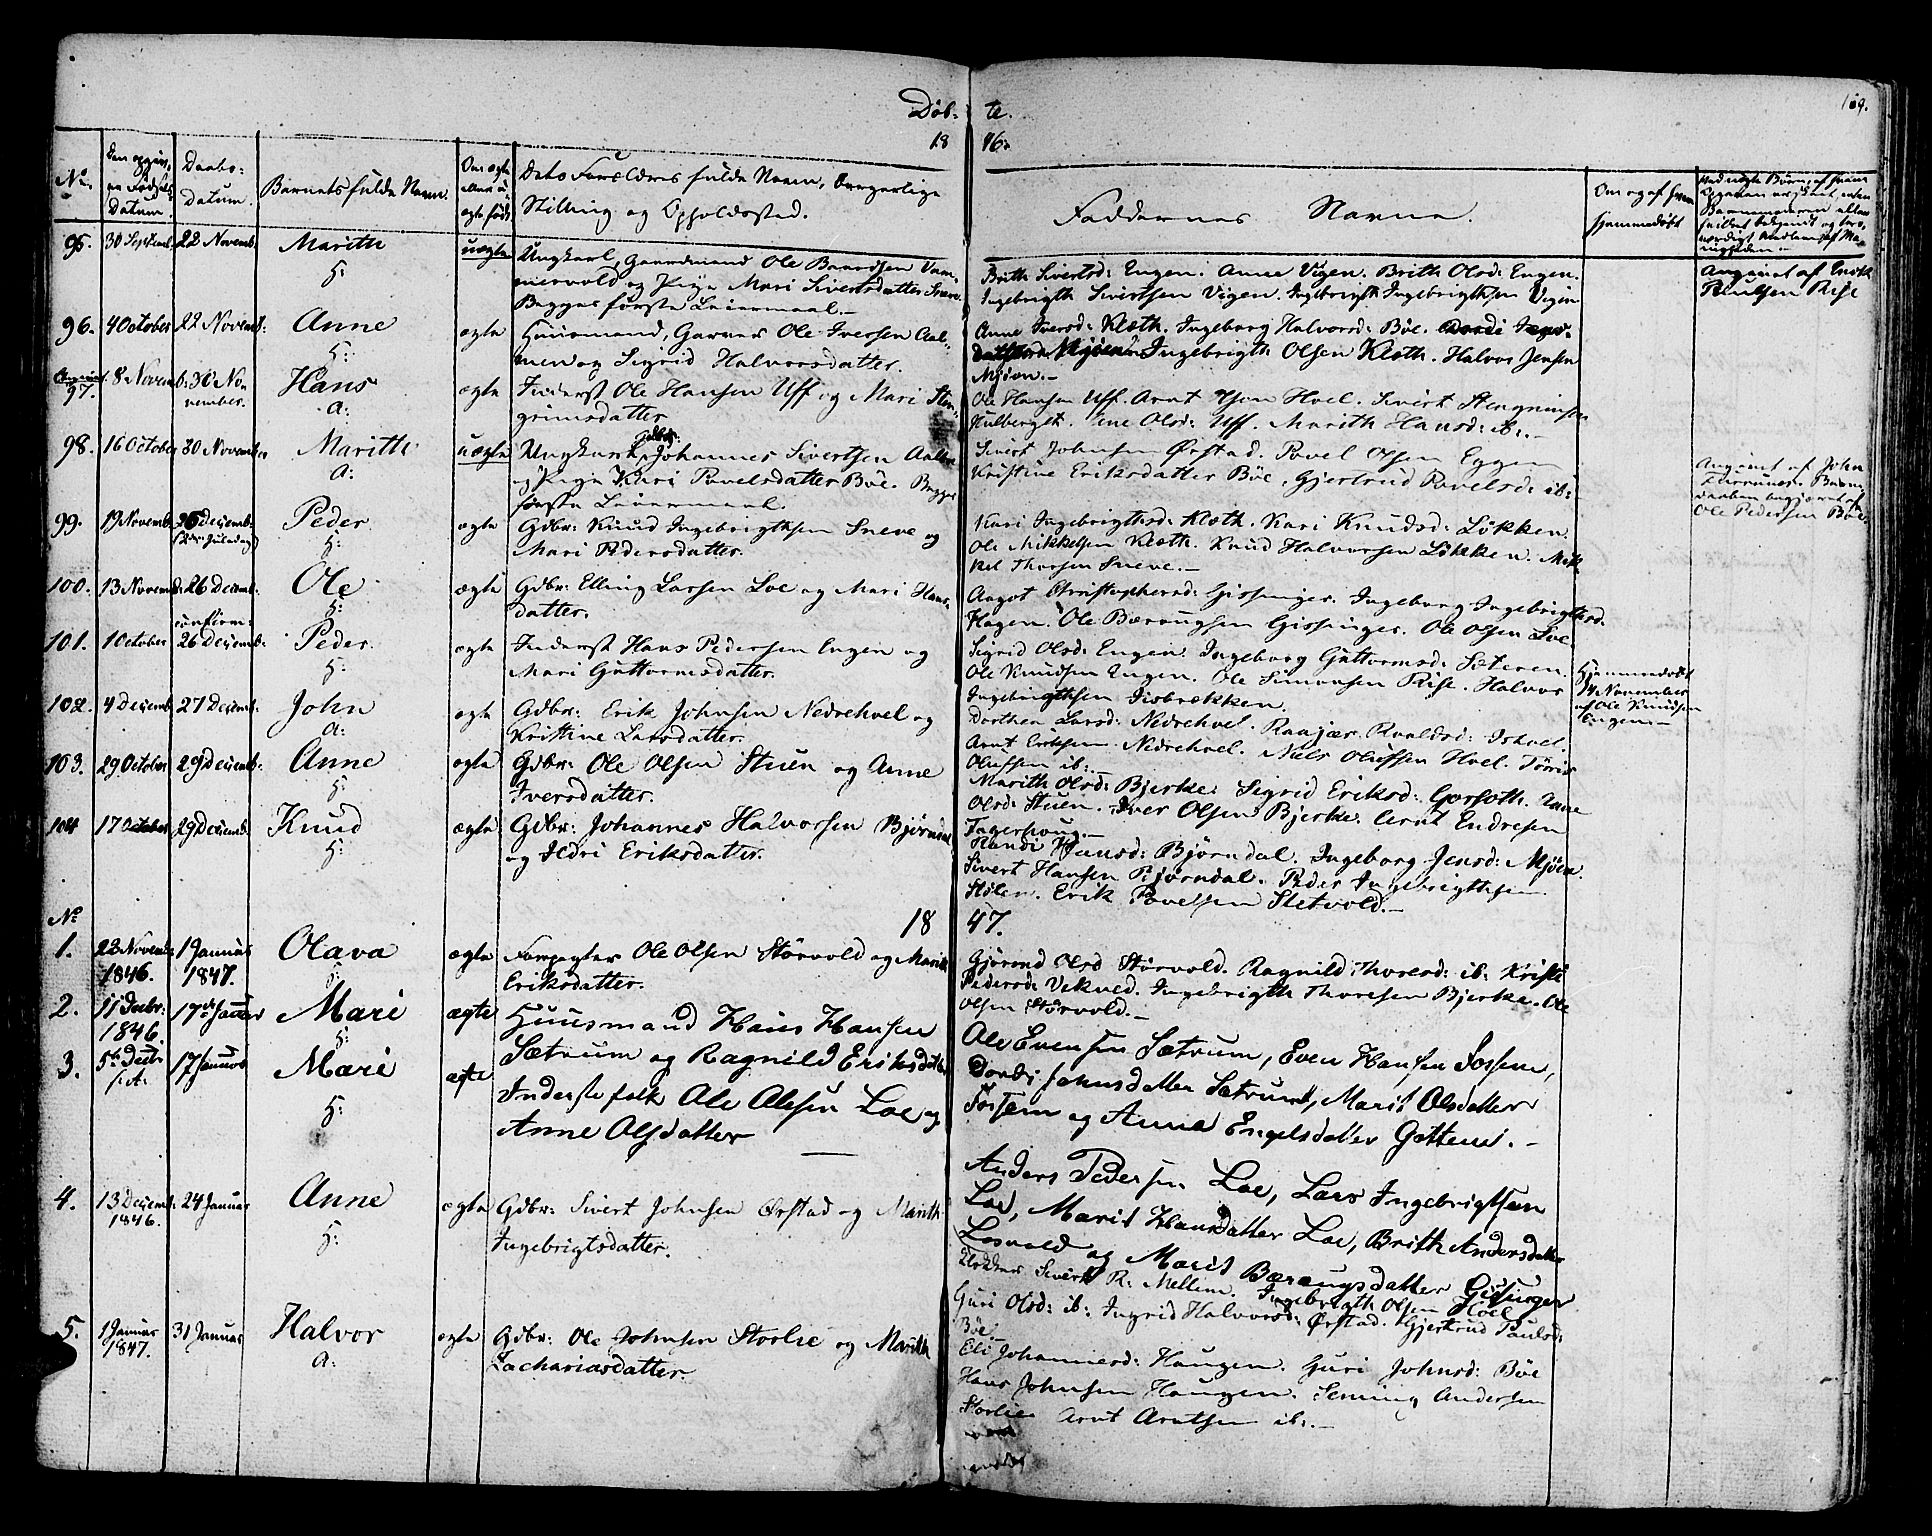 Døb-
te.
169.
18
46.
No.
Den opgivne Fødsels Datum.
Daabs-
datum.
Barnets fulde Navn.
Om ægte
eller u-
ægte født
Dets Forældres fulde Navn, borgerlige
Stilling og Opholdssted.
Faddernes Navne.
Om og af hvem
hjemmedøbt
95. 30 Septemb. 22 Novemb. Marith uægte Ungkarl, Gaardmand Ole Baardsen Vam-
h: mervold og Pige Mari Sivertsdatter Sneve.
Begges første Leiermaal.
Brith Sivertsd: Engen. Anne Vigen. Brith Olsd: Engen.
Ingebrigth Sivertsen Vigen. Ingebrigth Ingebrigthsen Vigen
Angivet af Erik
Poulsen Rise
96. 4 October 22 Novemb: Anne ægte Huusmand, Garver Ole Iversen Aal-
h: men og Sigrid Halvorsdatter.
Anne Iversd: Kleth. Ingeborg Halvorsd: Böe.
Ingebrigth Olsen Kleth. Halvor Jensen
Mjöen.
97. 8 Novemb: 30 No-
vember. Hans ægte Inderst Ole Hansen Uff og Mari Sten-
a: grimsdatter
Ole Hansen Uff. Arnt Olsen Hoel. Sivert Stengrimsen
Hulbergth. Ane Olsd: Uff. Marith Hansd: ib:
98. 16 October 30 November Marith uægte Ungkarl Johannes Sivertsen Aalbu
a: og Pige Kari Pavelsdatter Böe. Begges
første Leiermaal.
Sivert Johnsen Ørstad. Pavel Olsen Eggen
Kristine Eriksdatter Böe, Gjertrud Pavelsd: ib:
Angivet af John
Ole Pedersen Böe
99. 19 Novemb: 25 Decemb: Peder ægte Gdbr: Knud Ingebrigthsen Sneve og
h: Mari Pedersdatter.
Kari Ingebrigthsd: Kleth. Kari Knudsd: Lökken.
Ole Mikkelsen Kleth. Knud Halvorsen Lökken. Mik-
kel Thorsen Sneve.
100. 13 Novemb: 26 Decemb: Ole ægte Gdbr: Elling Larsen Loe og Mari Hans-
h: datter.
Angot Christophersd: Gissinger. Ingeborg Ingebrigthsd:
Hagen. Ole Bæraugsen Gissinger. Ole Olsen Loe
101. 1 October confirm: 26 Decemb: Peder ægte Inderst Hans Pedersen Engen og
h: Mari Guttormsdatter.
Sigrid Olsd: Engen. Ingeborg Guttormsd: Sæteren.
Ole Knudsen Engen. Ole Simonsen Rise. Halvor
Ingebrigthsen Isbrækken.
Hjemmedøbt
14 November
af Ole Knudsen
Engen.
102. 4 Decemb: 27 Decemb: John ægte Gdbr: Erik Johnsen Nedrehoel og
a: Kristine Larsdatter.
Dorthea Larsd: Nedrehoel. Ranjær Roaldsd: Ishoel.
Arnt Eriksen Nedrehoel. Niels Olufsen Hoel. Törris
Olufsen ib:
103. 29 October 29 Decemb: Anne ægte Gdbr: Ole Olsen Stuen og Anne
h: Iversdatter.
Marith Olsd: Bjerke. Sigrid Eriksd: Gorsoth. Anne
Olsd: Stuen. Iver Olsen Bjerke. Arnt Endresen
Fagerhoug.
104 17 October 29 Decemb: Knud ægte Gdbr: Johannes Halvorsen Bjørndal
h: og Ildri Eriksdatter.
Randi Hansd: Bjørndal. Ingeborg Jensd: Mjöen.
Sivert Hansen Bjørndal. Peder Ingebrigthsen
Stölen. Erik Povelsen Sletvold.
No 18
47.
1. 22 Novemb: 1846. 1 Januar 1847. Olava ægte Forpagter Ole Olsen Störvold og Marith
h: Eriksdatter.
Gjörond Olsd Störvold. Ragnild Thoresd: ib: Kristi
Pedersd: Vekved. Ingebrigth Thoresen Bjerke. Ole
Olsen Störvold.
2. 11 Decbr: 1846. 17de Januar Mari ægte Huusmand Hans Hansen
h: Sætrum og Ragnild Eriksdatter
Ole Evensen Sætrum, Even Hansen Fossem,
Dordi Johnsdatter Sætrum, Marit Olsdatter
Fossem og Anna Engelsdatter Gottem.
3. 5te Decbr f.A. 17 Januar Mari ægte Inderstefolk Ole Olesen Loe og
h: Anne Olsdatter
Anders Pedersen Loe, Lars Ingebrigtsen
Loe, Marit Hansdatter Loe, Brith Andersdatter
Losvold og Marit Bæraugsdatter Gisinger
4. 13 Decemb: 1846. 24 Januar Anne ægte Gdbr: Sivert Johnsen Ørstad og Marith
h: Ingebrigtsdatter.
Klokker Sivert R. Mellem. Ingebrigth Olsen Hoel
Guri Olsd: ib: Ingrid Halvorsd: Ørstad. Gjertrud Paulsd:
Böe.
5. 1 Januar 1847. 31 Januar Halvor ægte Gdbr: Ole Johnsen Storlie og Marith
a: Zachariasdatter.
Eli Johannesd: Haugen. Guri Johnsd: Böe
Hans Johnsen Haugen. Sæming Andersen
Storlie. Arnt Arntsen ib: